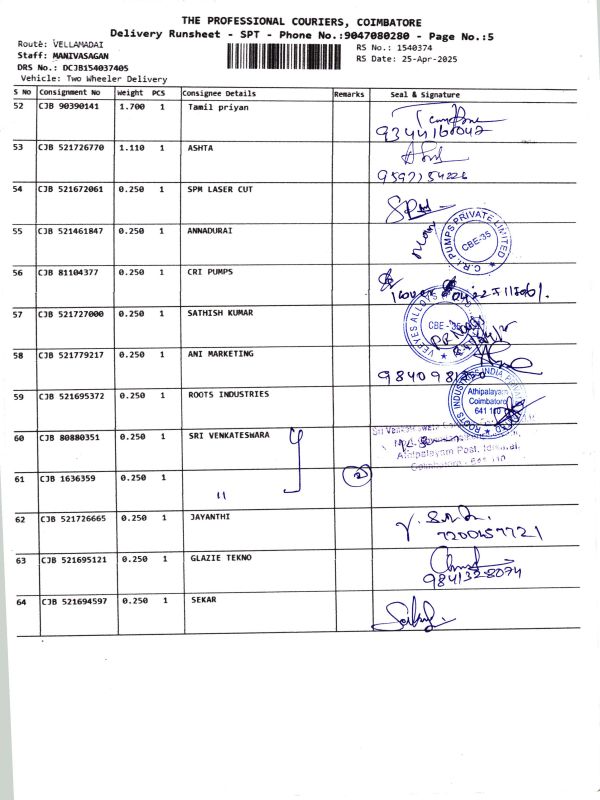 THE PROFESSIONAL COURIERS, COIMBATORE
Delivery Runsheet - SPT - Phone No.:9047080280 - Page No.:5
Route: VELLAMADAI
RS No.: 1540374
Staff: MANIVASAGAN
RS Date: 25-Apr-2025
DRS No.: DCJB154037405
Vehicle: Two Wheeler Delivery
S No Consignment No Weight PCS Consignee Details Remarks Seal & Signature
52 CJB 90390141 1.700 1 Tamil priyan
9344160042
53 CJB 521726770 1.110 1 ASHTA
54 CJB 521672061 0.250 1 SPM LASER CUT
55 CJB 521461847 0.250 1 ANNADURAI
C.R.I. PUMPS PRIVATE LIMITED
CBE-35
56 CJB 81104377 0.250 1 CRI PUMPS
57 CJB 521727000 0.250 1 SATHISH KUMAR
VEEYES ALLOYS
CBE - 35
58 CJB 521779217 0.250 1 ANI MARKETING
59 CJB 521695372 0.250 1 ROOTS INDUSTRIES
ROOTS INDUSTRIES INDIA
Athipalayam
Coimbatore
641 110
60 CJB 80880351 0.250 1 SRI VENKATESWARA
Athipalayam Post,
Coimbatore - 641 110
61 CJB 1636359 0.250 1 " 2
62 CJB 521726665 0.250 1 JAYANTHI
63 CJB 521695121 0.250 1 GLAZIE TEKNO
64 CJB 521694597 0.250 1 SEKAR